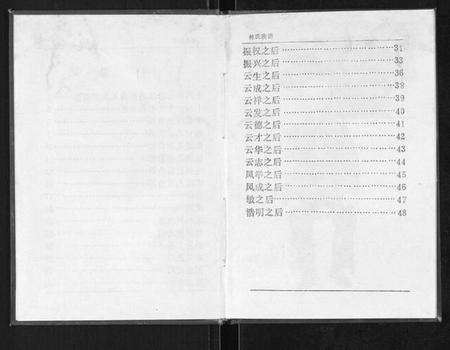 林氏族谱
振权之后……31
振兴之后……33
云生之后……36
云成之后……38
云祥之后……39
云发之后……40
云德之后……41
云才之后……42
云华之后……43
云志之后……44
凤举之后……45
凤成之后……46
敏之后……47
浩明之后……48